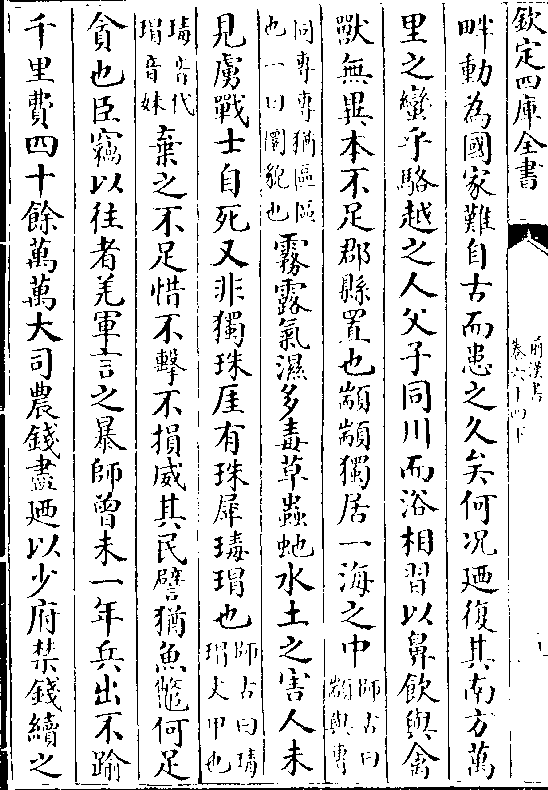 欽定四庫全書
前漢書
卷六十四下
畔動為國家難自古而患之久矣何况廼復其南方萬
里之蠻乎駱越之人父子同川而浴相習以鼻飲與禽
獸無異本不足郡縣置也顓顓獨居一海之中師古曰顓與專
同專專猶區區也一曰圜貌也霧露氣濕多毒草蟲虵水土之害人未
見虜戰士自死又非獨珠厓有珠犀瑇瑁也師古曰瑇瑁文甲也
瑇音代瑁音妹棄之不足惜不擊不損威其民譬猶魚鼈何足
貪也臣竊以往者羌軍言之暴師曾未一年兵出不踰
千里費四十餘萬萬大司農錢盡廼以少府禁錢續之